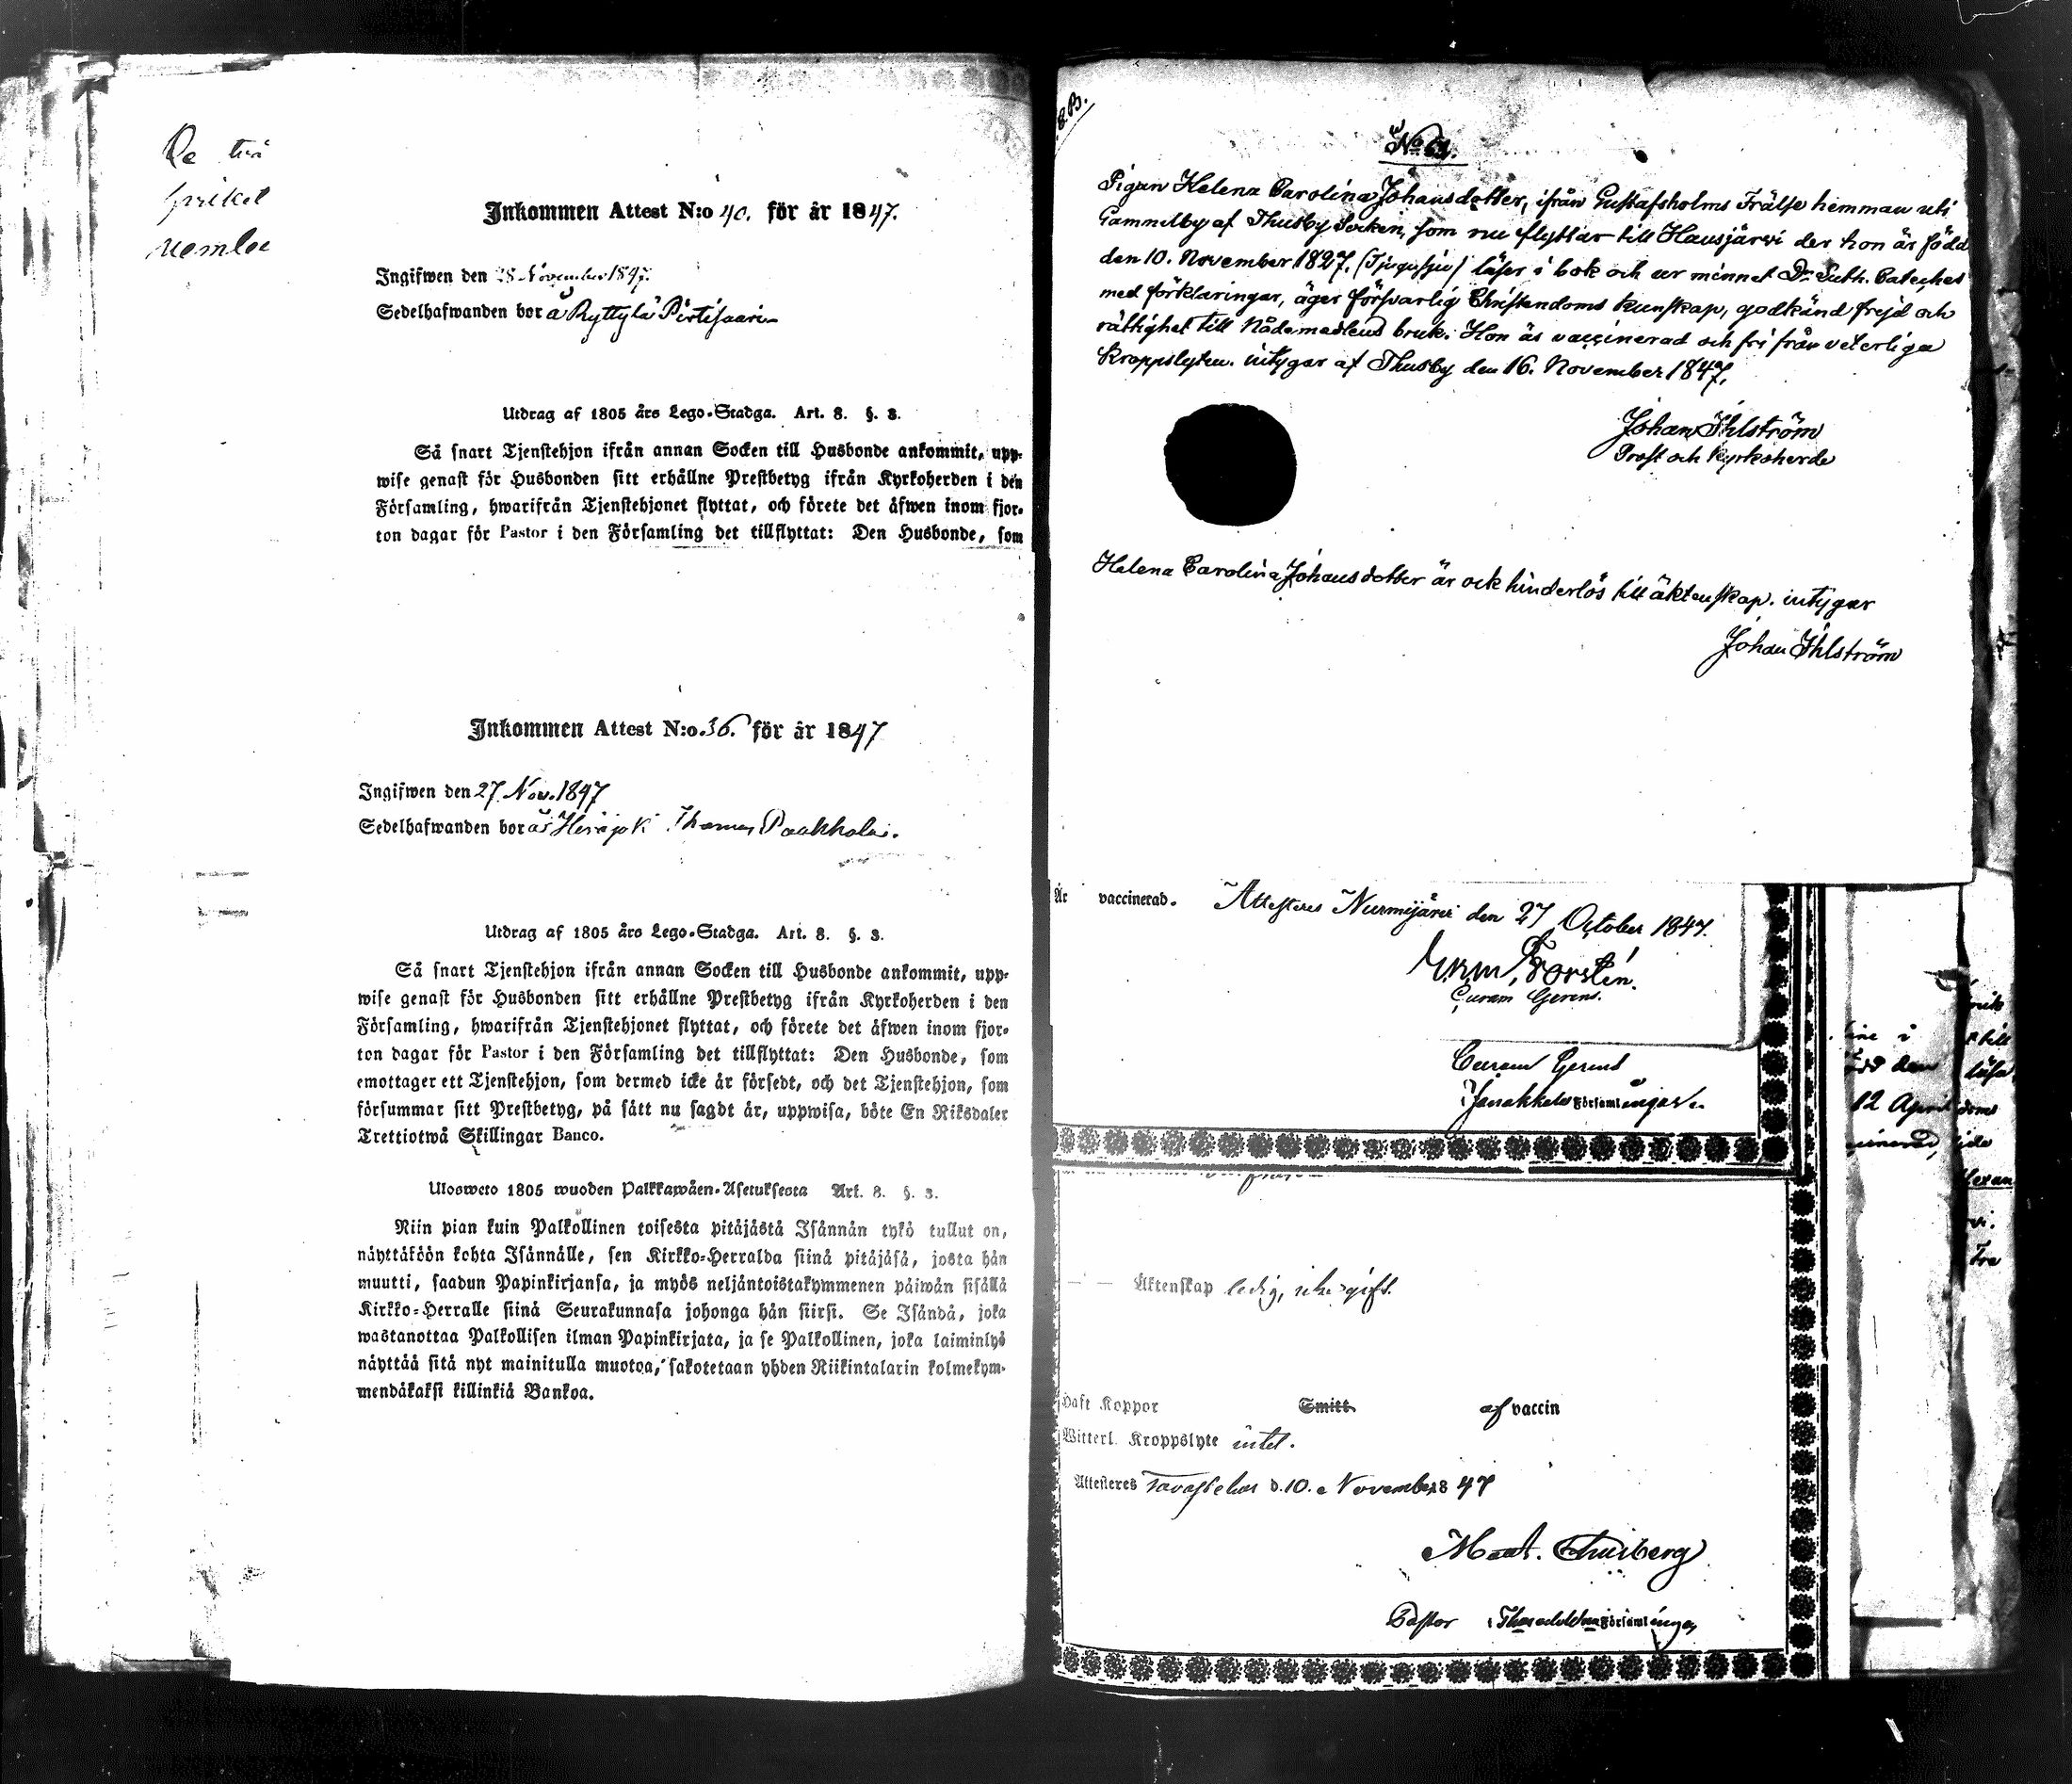 De två
Inkommen Attest N:o 40. för år 1847.
Ingifwen den 28 November 1847.
Sedelhafwanden bor å Ryttylä Pirtisaari
Utdrag af 1805 års Lego-Stadga. Art. 8. §. 3.
Så snart Tjenstehjon ifrån annan Socken till Husbonde ankommit, upp-
wise genast för Husbonden sitt erhållne Prestbetyg ifrån Kyrkoherden i den
Församling, hwarifrån Tjenstehjonet flyttat, och förete det äfwen inom fjor-
ton dagar för Pastor i den Församling det tillflyttat: Den Husbonde, som
Inkommen Attest N:o 36. för år 1847
Ingifwen den 27 Nov. 1847
Sedelhafwanden bor å Herajoki Thomas
Utdrag af 1805 års Lego-Stadga. Art. 8. §. 3.
Så snart Tjenstehjon ifrån annan Socken till Husbonde ankommit, upp-
wise genast för Husbonden sitt erhållne Prestbetyg ifrån Kyrkoherden i den
Församling, hwarifrån Tjenstehjonet flyttat, och förete det äfwen inom fjor-
ton dagar för Pastor i den Församling det tillflyttat: Den Husbonde, som
emottager ett Tjenstehjon, som dermed icke är försedt, och det Tjenstehjon, som
försummar sitt Prestbetyg, på sätt nu sagdt är, uppwisa, böte En Riksdaler
Trettiotwå Skillingar Banco.
Ulosweto 1805 wuoden Palkkawäen-Asetuksesta Art. 8. §. 3.
Niin pian kuin Palkollinen toisesta pitäjästä Isännän tykö tullut on,
näyttäköön kohta Isännälle, sen Kirkko-Herralda siinä pitäjäsä, josta hän
muutti, saadun Papinkirjansa, ja myös neljäntoistakymmenen päiwän sisällä
Kirkko-Herralle siinä Seurakunnasa johonga hän siirsi. Se Isändä, joka
wastanottaa Palkollisen ilman Papinkirjata, ja se Palkollinen, joka laiminlyö
näyttää sitä nyt mainitulla muotoa, sakotetaan yhden Riikintalarin kolmekym-
mendäkaksi killinkiä Bankoa.
No 61.
Pigan Helena Carolina Johansdotter, ifrån Gustafsholms Frälse hemman uti
Gammelby af Thusby Socken, som nu flyttar till Hausjärvi der hon är född
den 10. November 1827, (Tjugusju) läser i bok och ur minnet Dr Luth. Cateches
med förklaringar, äger försvarlig Christendoms kunskap, godkänd frejd och
rättighet till Nådemedlens bruk. Hon är vaccinerad och fri från veterliga
Kroppslyten. intygar af Thusby den 16. November 1847.
Johan Ihlström
Prost och Kyrkoherde
Helena Carolina Johansdotter är ock hinderlös till äktenskap. intygar
Johan Ihlström
Är vaccinerad. Attesteras Nurmijärvi den 27 October 1847.
Forstén.
Curam Gerens.
Curam Gerens
i Janakkala Församlingar.
Äktenskap ledig, icke gift.
Haft Koppor Smitt af vaccin
Witterl. Kroppslyte intet.
Attesteres Tavastehus d. 10. November 1847
Pastor i Församlingar
12 April